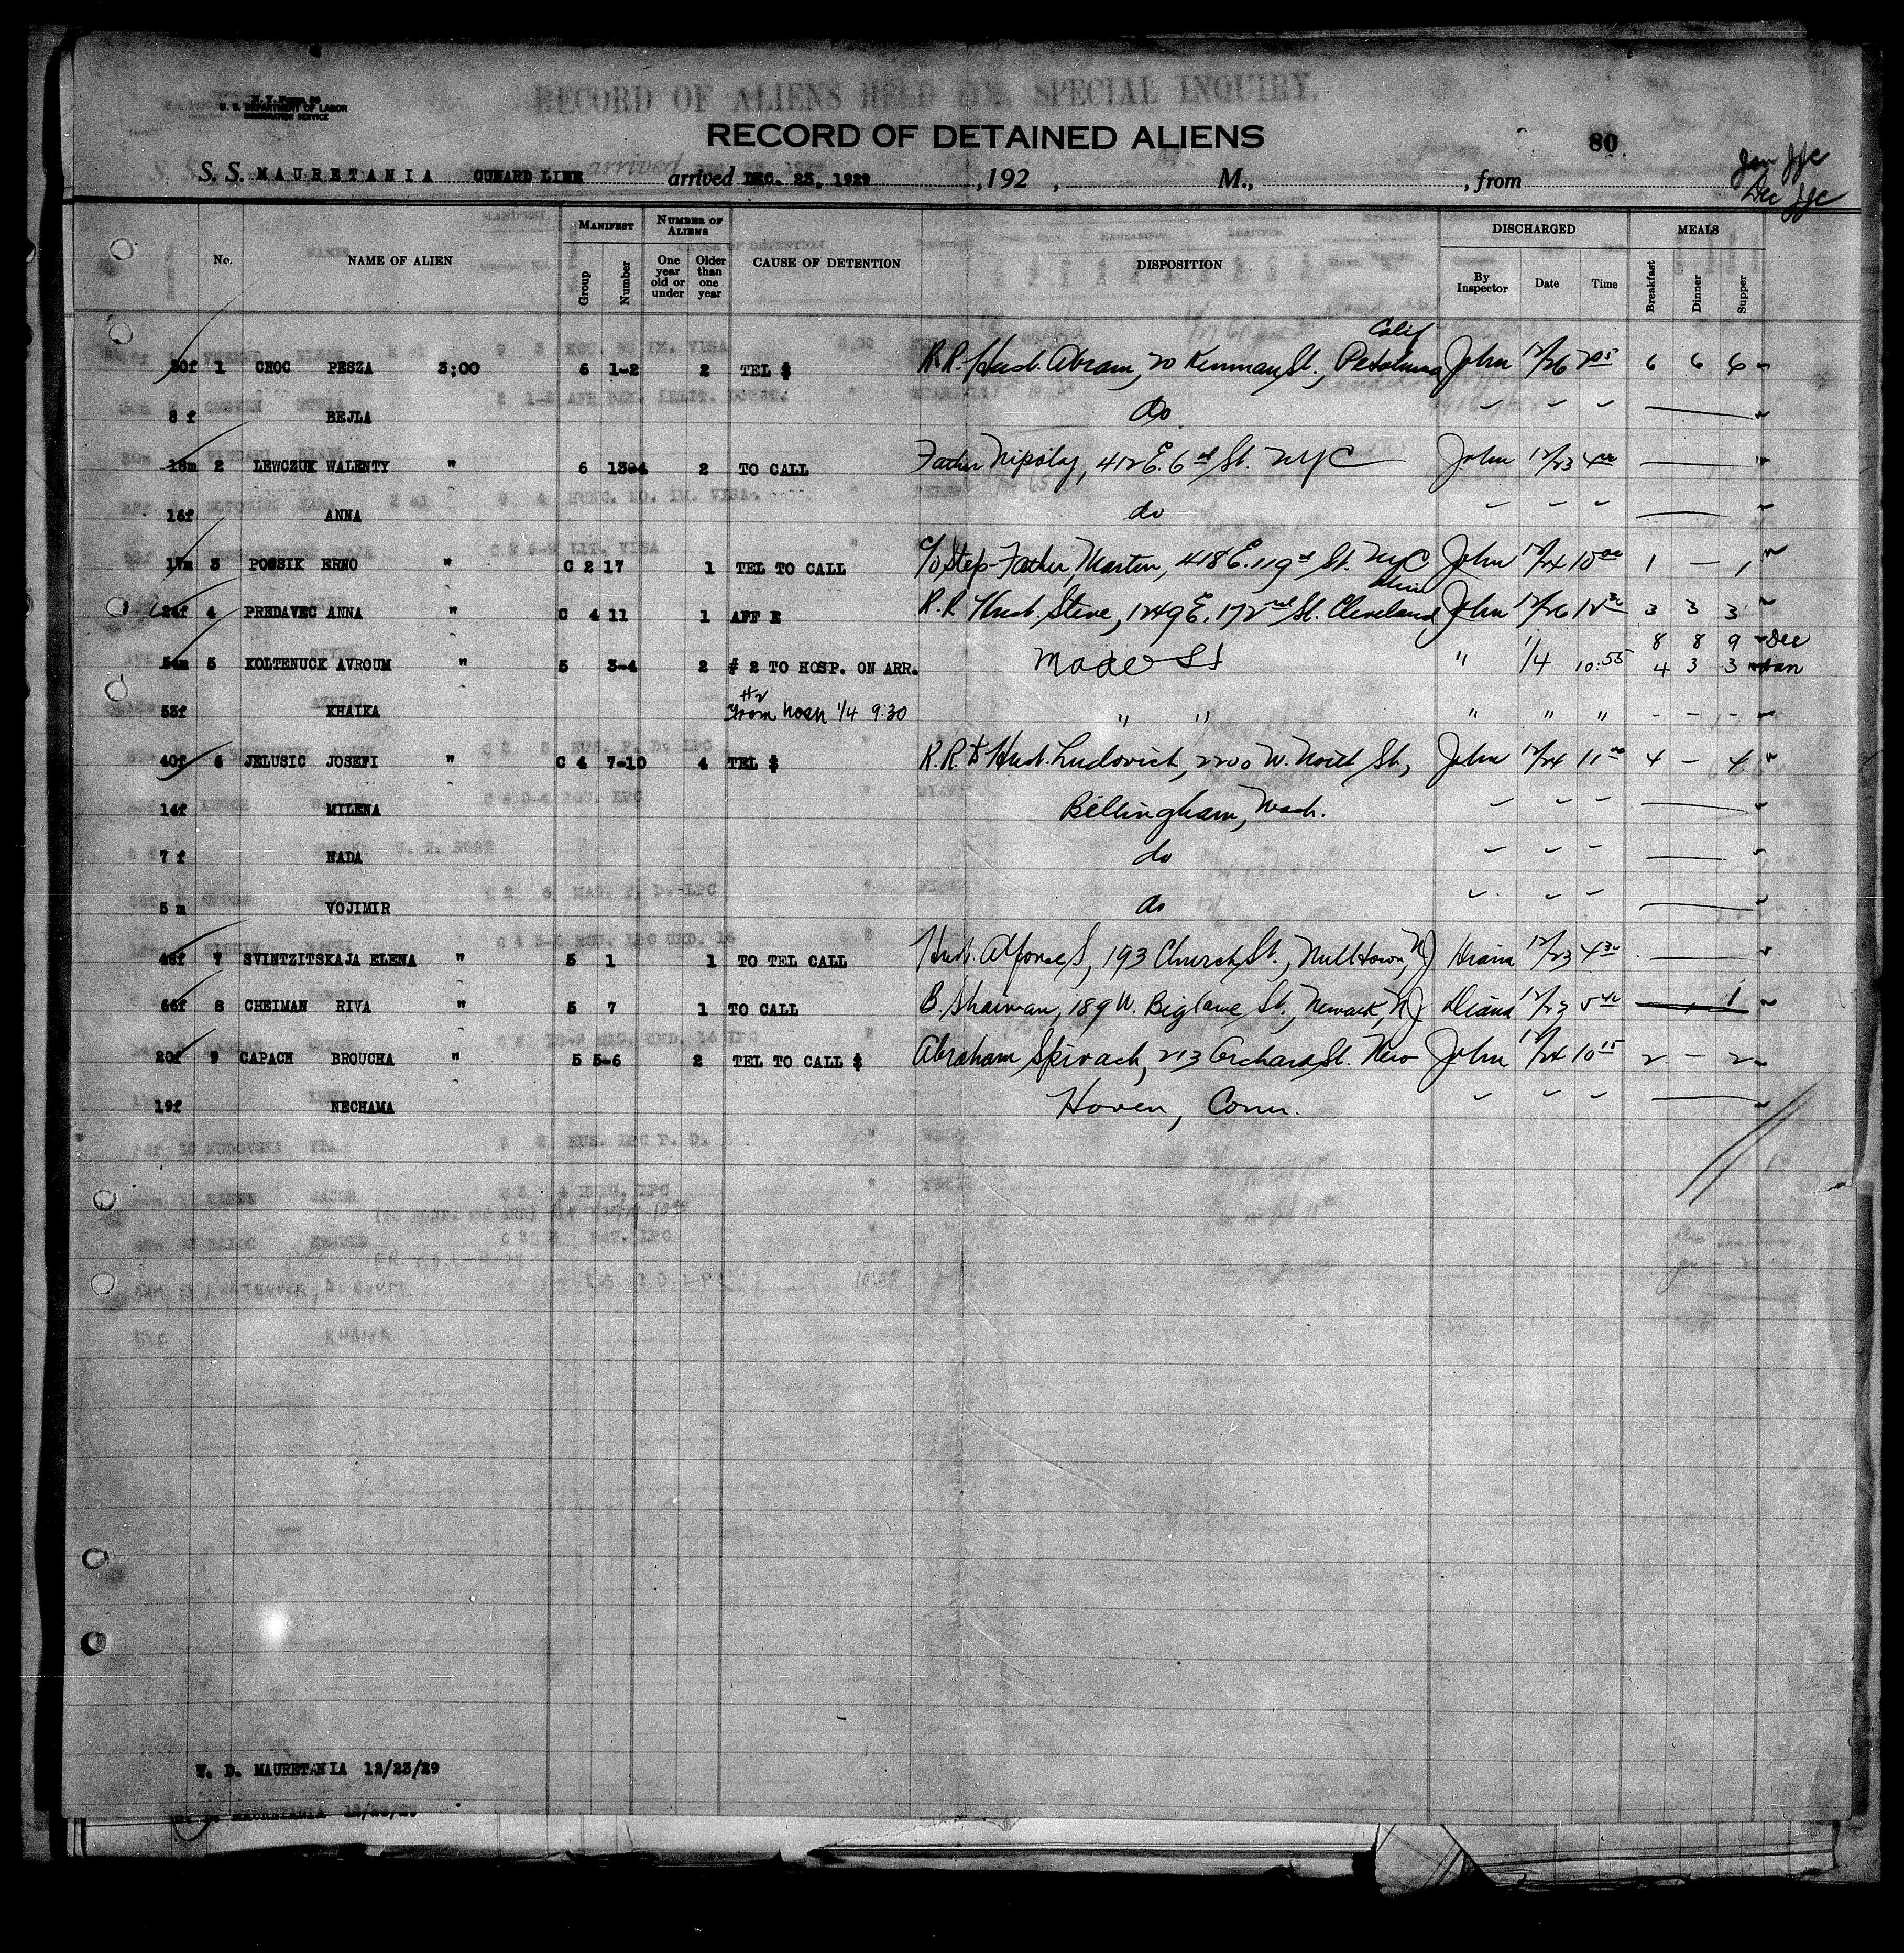 U. S. DEPARTMENT OF LABOR
IMMIGRATION SERVICE
RECORD OF ALIENS HELD SPECIAL INQUIRY.
RECORD OF DETAINED ALIENS
80
S. S. MAURETANIA CUNARD LINE arrived DEC. 23, 1929, 192 , M., , from
Jan JJC
Dec JJC
No. NAME OF ALIEN MANIFEST Group Number NUMBER OF ALIENS One year old or under Older than one year CAUSE OF DETENTION DISPOSITION DISCHARGED By Inspector Date Time MEALS Breakfast Dinner Supper
Calif
30f 1 CHOC PESZA 3;00 6 1-2 2 TEL $ R.R. Husb. Abram, 20 Kenman St., Petaluma John 12/26 2 05 6 6 6
8 f BEJLA do
18m 2 LEWCZUK WALENTY " 6 2 TO CALL Father 412 E. 6 St. NYC John 12/23 4 00
16f ANNA do
17m 3 POSSIK ERNO " C 2 17 1 TEL TO CALL C/o Step-Father, Martin, 418 E. 119 St. NYC John 12/24 10 00 1 - 1
24f 4 PREDAVEC ANNA " C 4 11 1 AFF E R.R. Husb. Steve, 1249 E. 172nd St. Cleveland, John 12/26 12 30 3 3 3
8 8 9 Dec
54m 5 KOLTENUCK AVROUM " 5 3-4 2 # 2 TO HOSP. ON ARR. Made SI " 1/4 10:55 4 3 3 Jan
53f KHAIKA From Hosp 1/4 9:30 " " " " " - - -
40f 6 JELUSIC JOSEFI " C 4 7-10 4 TEL $ R.R. Husb. Ludovich, 2200 W. North St., John 12/24 11 00 4 - 4
14f MILENA Bellingham, Wash.
7 f NADA do
5 m VOJIMIR do
48f 7 SVINTZITSKAJA ELENA " 5 1 1 TO TEL CALL Husb. Alfonse S, 193 Church St., Milltown, NJ Diana 12/23 4 30
66f 8 CHEIMAN RIVA " 5 7 1 TO CALL B. Shaiman, 189 W. Bigelowe St., Newark, NJ Diana 12/23 5 40 1
20f 9 CAPACH BROUCHA " 5 5-6 2 TEL TO CALL $ Abraham Spivack, 213 Orchard St. New John 12/24 10 15 2 - 2
19f NECHAMA Haven, Conn.
KHAIKA
W. D. MAURETANIA 12/23/29
MAURETANIA 12/23/29